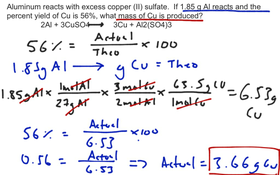 Aluminum reacts with excess copper (II) sulfate. If 1.85 g Al reacts and the
percent yield of Cu is 56%, what mass of Cu is produced?
2Al + 3CuSO4 → 3Cu + Al2(SO4)3
56% = Actual / Theo × 100
1.85g Al → g Cu = Theo
1.85g Al × 1mol Al / 27g Al × 3mol Cu / 2mol Al × 63.5g Cu / 1mol Cu = 6.53g Cu
56% = Actual / 6.53 × 100
0.56 = Actual / 6.53 ⇒ Actual = 3.66g Cu